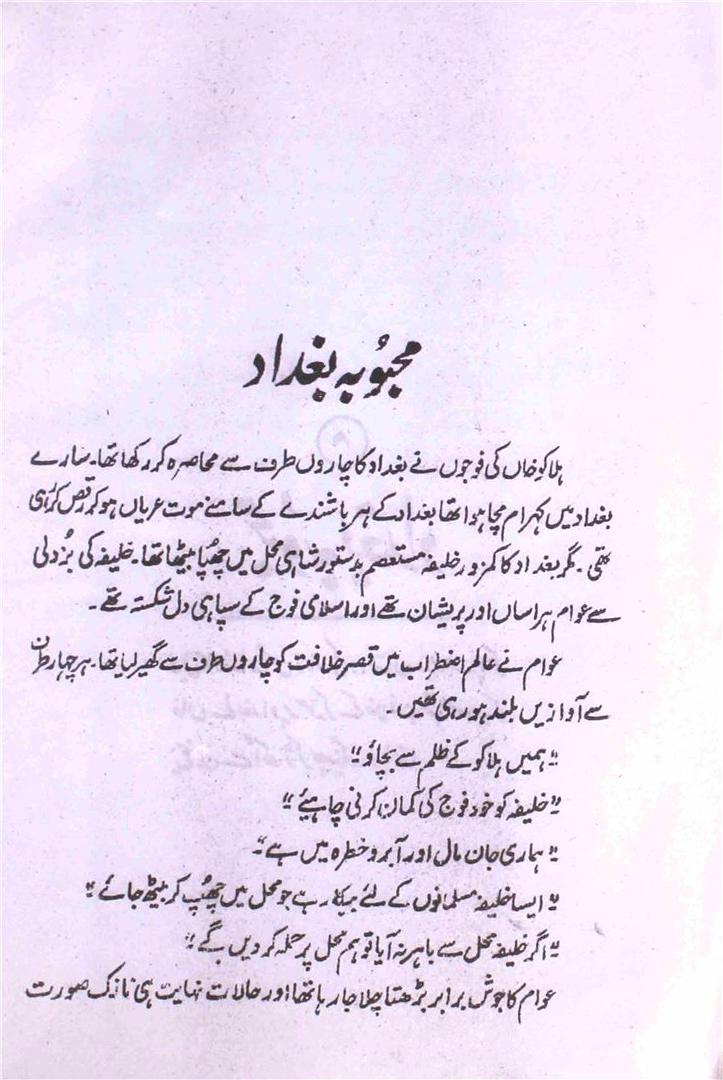 محبُوبہ بغداد
ہلاکو خاں کی فوجوں نے بغداد کا چاروں طرف سے محاصرہ کر رکھا تھا۔ سارے
بغداد میں کہرام مچا ہوا تھا بغداد کے ہر باشندے کے سامنے موت عریاں ہو کر رقص کر رہی
تھی۔ مگر بغداد کا کمزور خلیفہ مستعصم بدستور شاہی محل میں چھپا بیٹھا تھا۔ خلیفہ کی بُزدلی
سے عوام ہراساں اور پریشان تھے اور اسلامی فوج کے سپاہی دل شکستہ تھے۔
عوام نے عالم اضطراب میں قصر خلافت کو چاروں طرف سے گھیر لیا تھا۔ ہر چہار طرف
سے آوازیں بلند ہو رہی تھیں۔
"ہمیں ہلاکو کے ظلم سے بچاؤ"
"خلیفہ کو خود فوج کی کمان کرنی چاہیئے"
"ہماری جان مال اور آبرو خطرہ میں ہے"۔
"ایسا خلیفہ مسلمانوں کے لئے بیکار ہے جو محل میں چھُپ کر بیٹھ جائے"
"اگر خلیفہ محل سے باہر نہ آیا تو ہم محل پر حملہ کر دیں گے"
عوام کا جوش برابر بڑھتا چلا جا رہا تھا اور حالات نہایت ہی نازک صورت